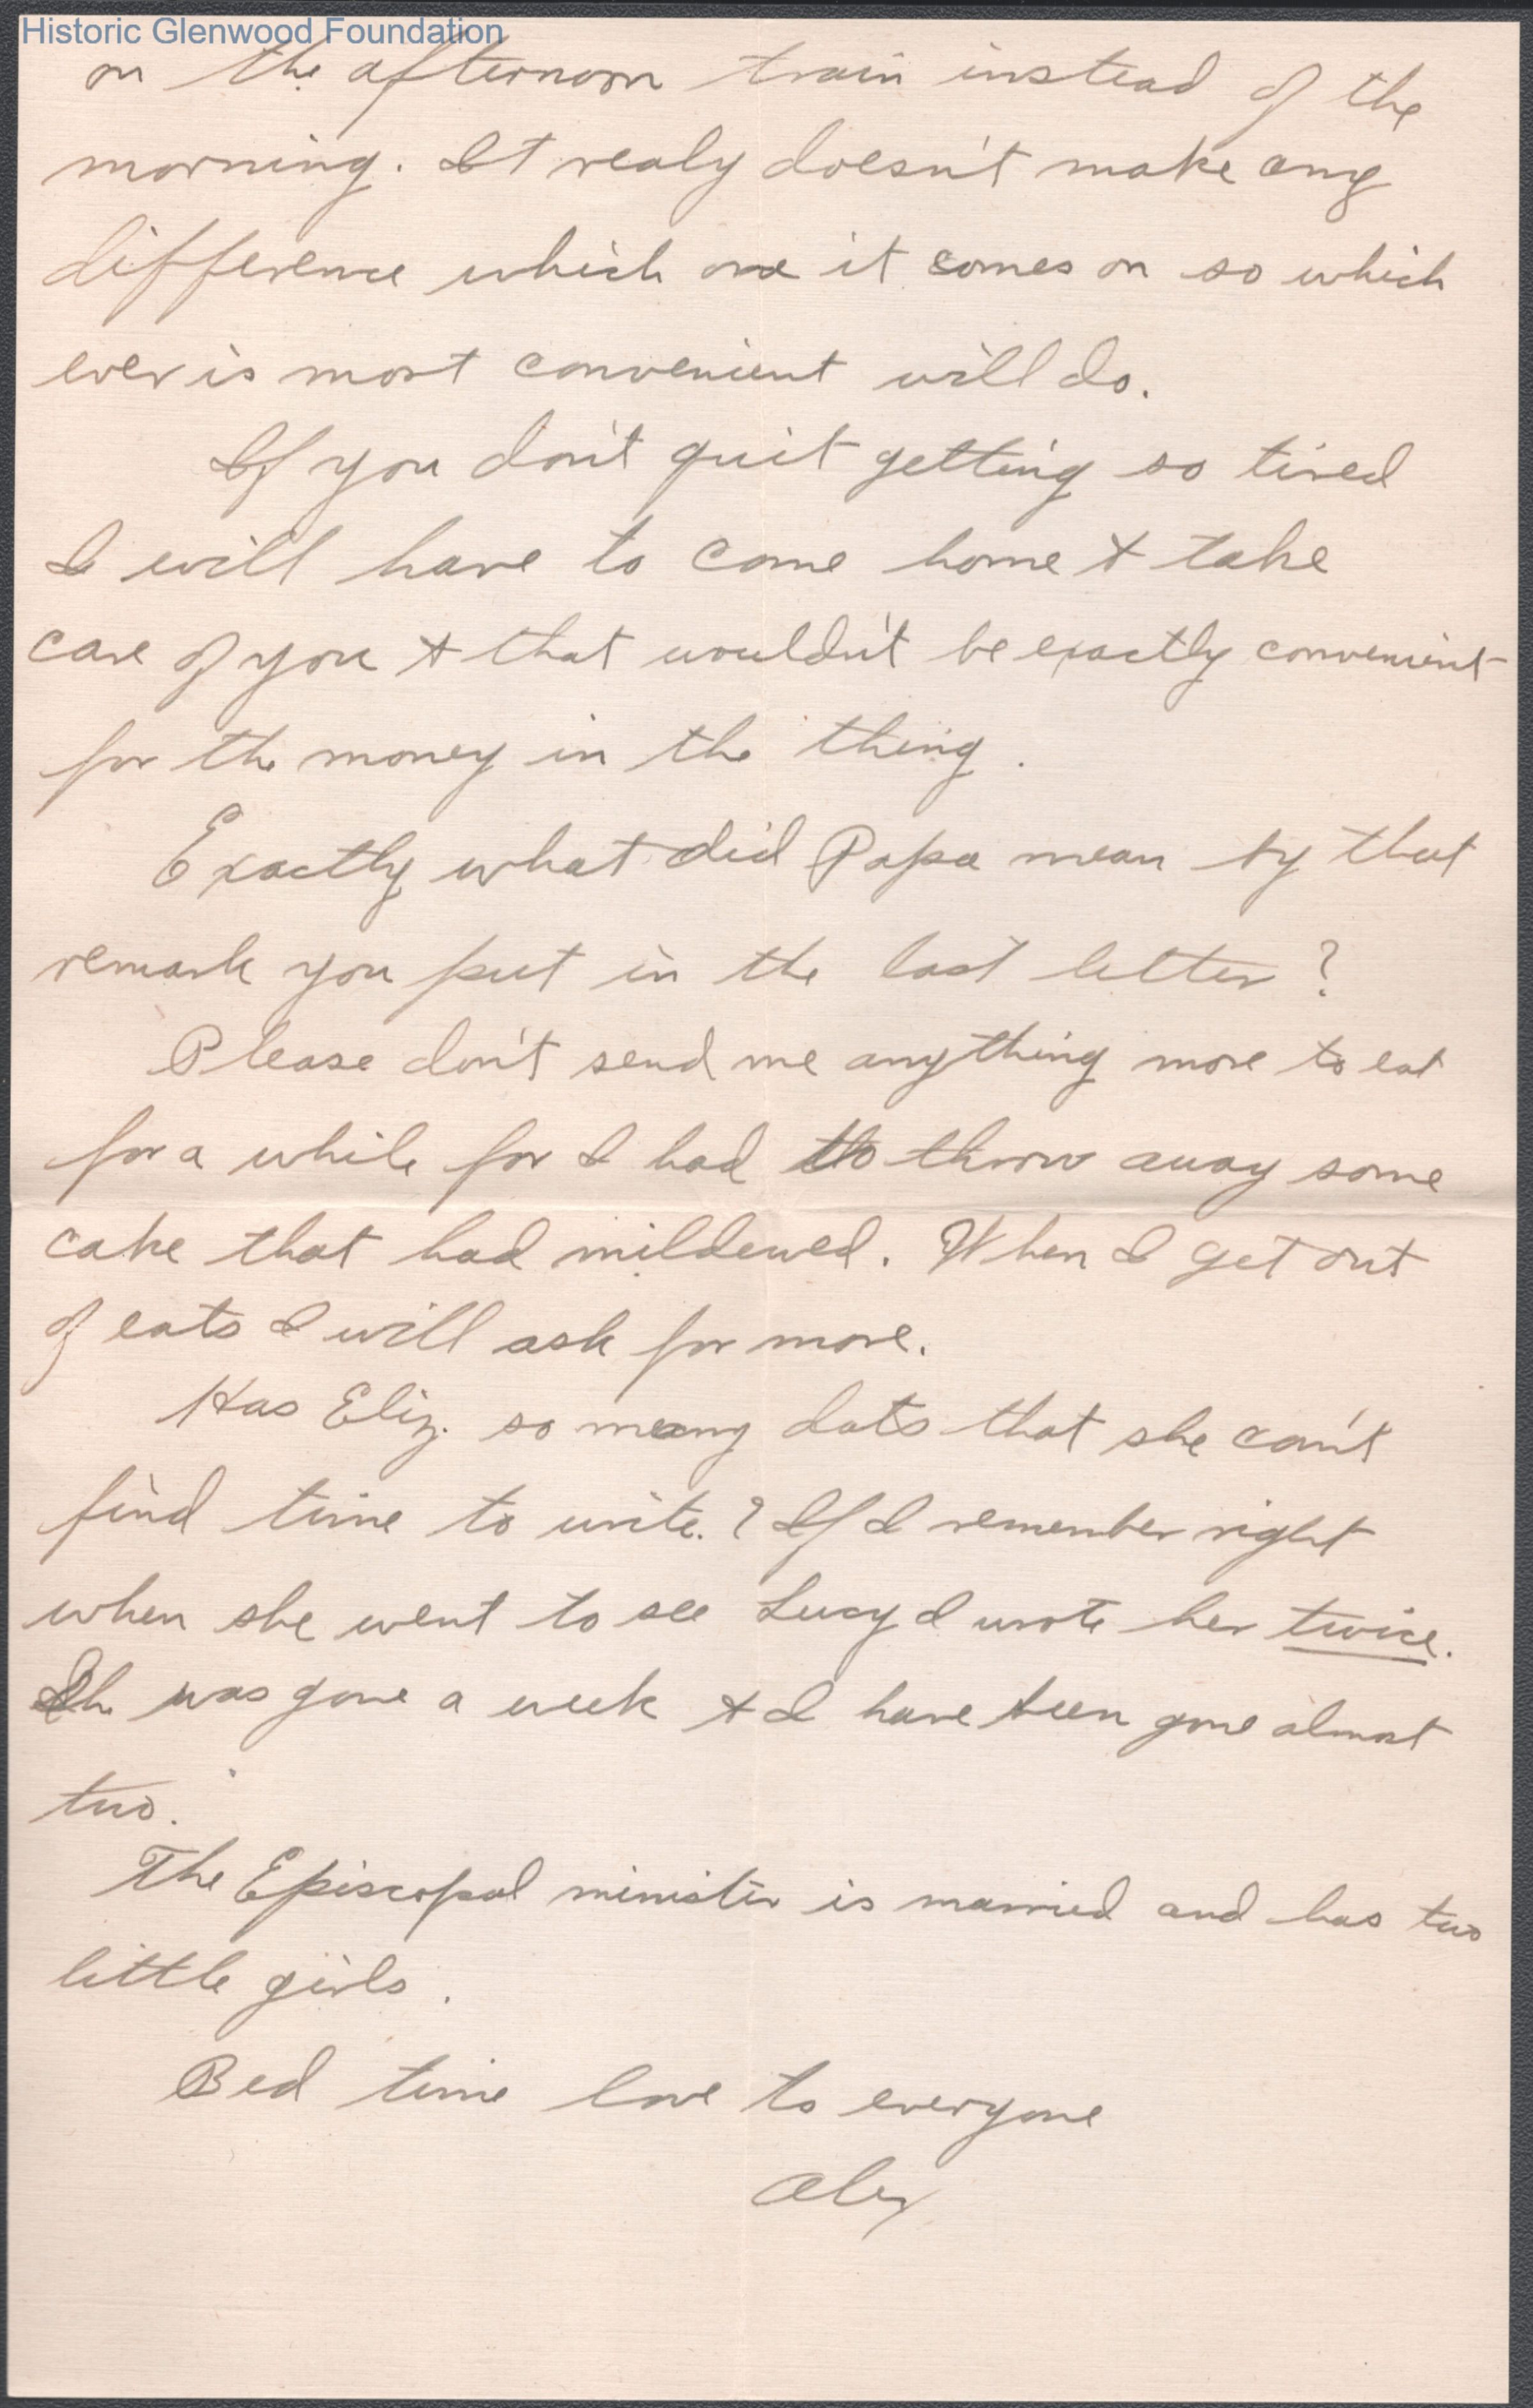 Historic Glenwood Foundation
on the afternoon train instead of the
morning. It realy doesn't make any
difference which one it comes on so which
ever is most convenient will do.
If you don't quit getting so tired
I will have to come home & take
care of you & that wouldn't be exactly convenient
for the money in the thing.
Exactly what did Papa mean by that
remark you put in the last letter?
Please don't send me anything more to eat
for a while for I had to throw away some
cake that had mildewed. When I get out
of eats I will ask for more.
Has Eliz. so many dats that she can't
find time to write.? If I remember right
when she went to see Lucy I wrote her twice.
She was gone a week & I have been gone almost
two.
The Episcopal minister is married and has two
little girls.
Bed time love to everyone